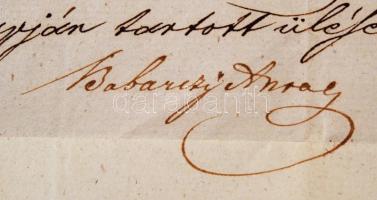 pján tartott ülése
Babarczy Antal
darabanth